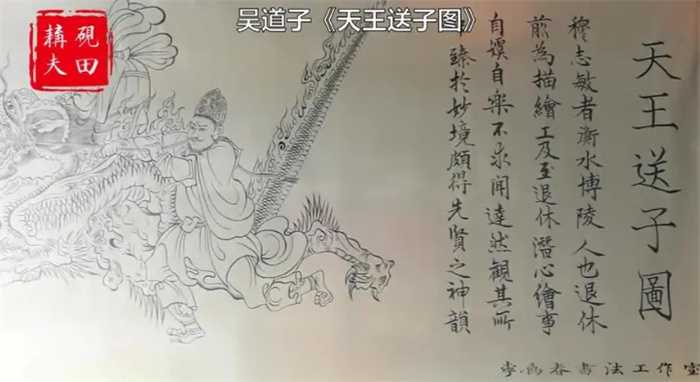 吴道子《天王送子图》
硯田
耩夫
天王送子圖
穆志敏者衡水博陵人也退休
前為描繪工及至退休潛心繪事
自娛自樂不求闻達然觀其所
臻於妙境頗得先賢之神韻
書法工作室